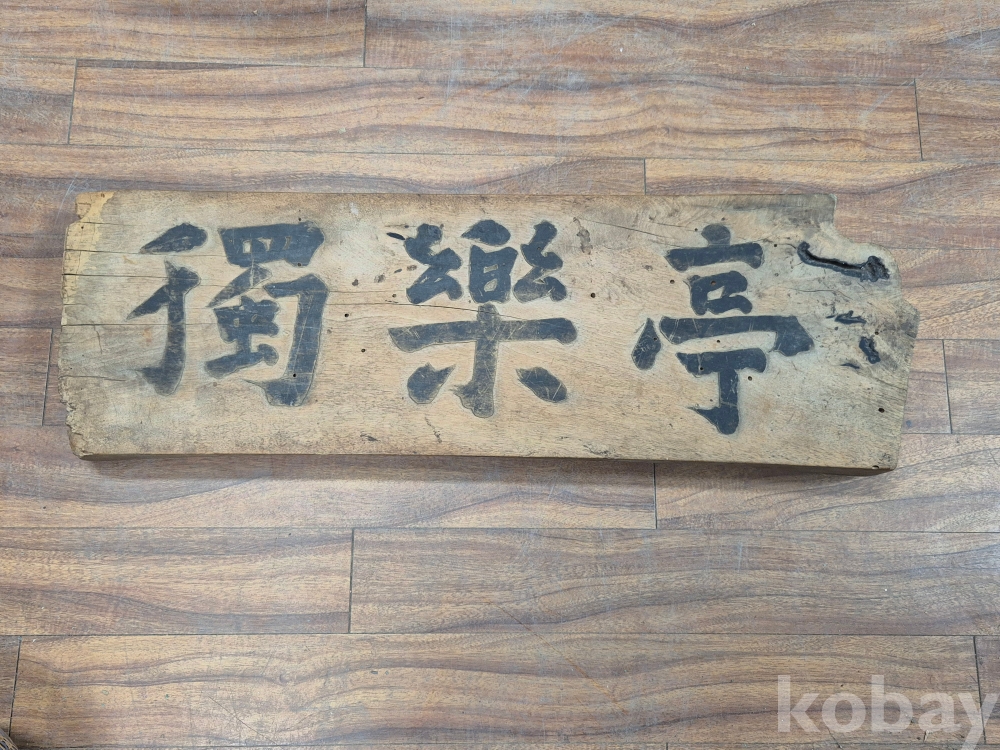 獨樂亭
kobay